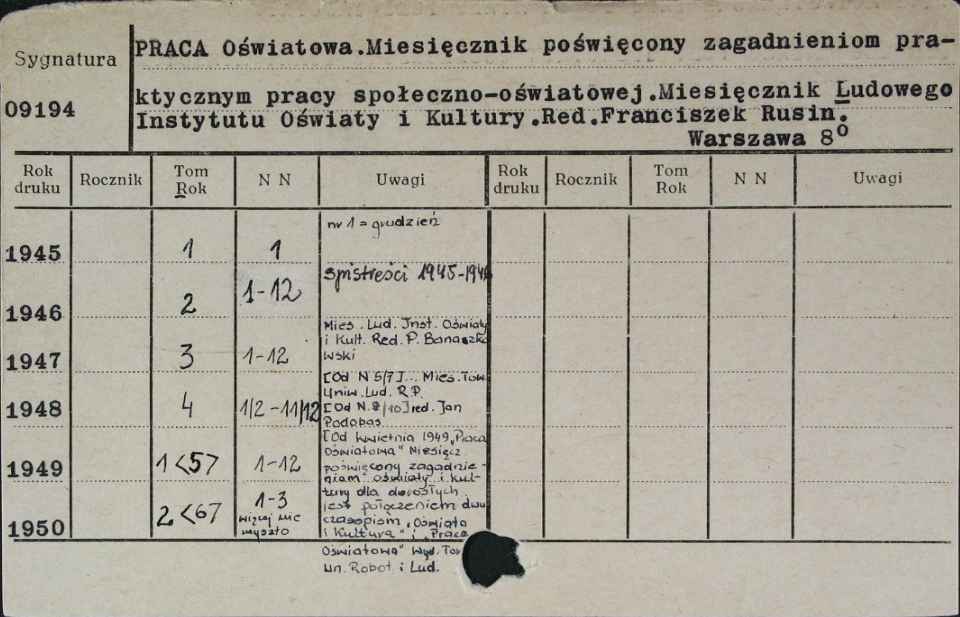 Sygnatura
09194
PRACA Oświatowa.Miesięcznik poświęcony zagadnieniom pra-
ktycznym pracy społeczno-oświatowej.Miesięcznik Ludowego
Instytutu Oświaty i Kultury.Red.Franciszek Rusin.
Warszawa 8°
Rok druku Rocznik Tom Rok N N Uwagi Rok druku Rocznik Tom Rok N N Uwagi
nr 1 = grudzień
1945 1 1
spis treści 1945-1946
1946 2 1-12
Mies. Lud. Inst. Oświaty
i Kult. Red. P. Banaszko
wski
1947 3 1-12
[Od N 5/7]... Mies. Tow.
Uniw. Lud. R.P.
1948 4 1/2-11/12
[Od N. /10] red. Jan
Podobas
[Od kwietnia 1949 „Praca
Oświatowa" Miesięcz
poświęcony zagadnie-
niom oświaty i kul-
1949 1<57 1-12
tury dla dorosłych
jest połączeniem dwu
czasopism „Oświata
i Kultura" i „Praca
1950 2<67 1-3
więcej nie
wyszło
Oświatowa" Wyd. Tow
Un. Robot. i Lud.